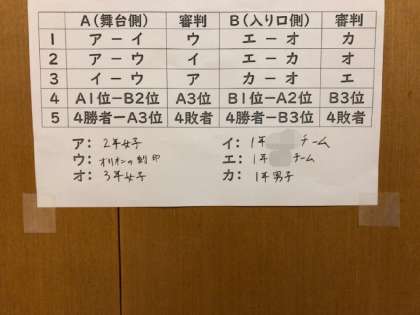 A（舞台側） 審判 B（入り口側） 審判
1 ア－イ ウ エ－オ カ
2 ア－ウ イ エ－カ オ
3 イ－ウ ア カ－オ エ
4 A1位－B2位 A3位 B1位－A2位 B3位
5 4勝者－A3位 4敗者 4勝者－B3位 4敗者
ア： 2年女子 イ： 1年 チーム
ウ： オリオンの刻印 エ： 1年 チーム
オ： 3年女子 カ： 1年男子